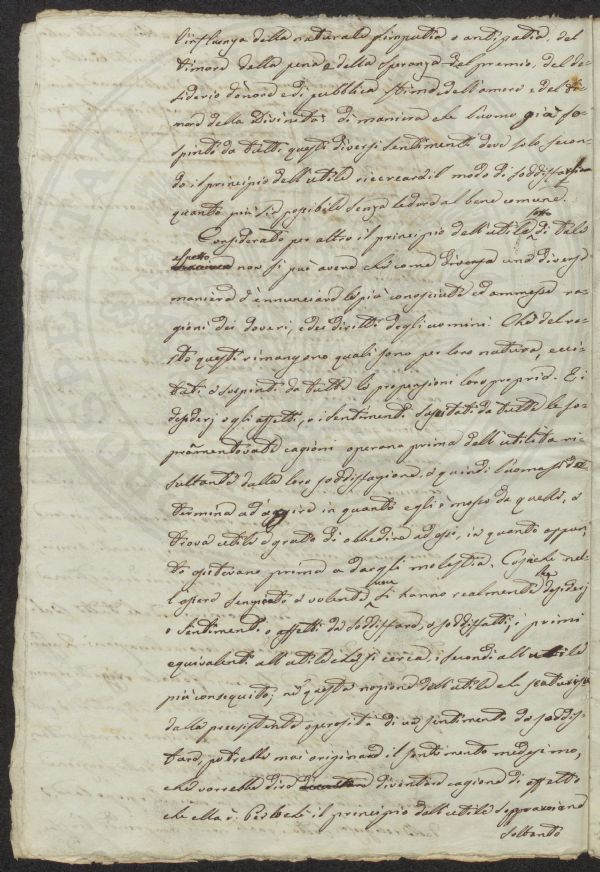 l'influenza della naturale simpatia o antipatia, del
timore della pena e della speranza del premio, del de-
siderio d'onore e di pubblica stima, dell'amore e del ti-
more della Divinità: di maniera che l'uomo già so-
spinto da tutti questi diversi sentimenti deve solo secon-
do il principio dell'utile ricercare il modo di soddisfarsi
quanto più sia possibile senza ledere al bene comune.
Considerato per altro il principio dell'utile sotto di tale
aspetto non si può avere che come diversa una diversa
maniera d'ennunciare le più conosciute ed ammesse ra-
gioni dei doveri, e dei diritti degli uomini. Chè del re-
sto questi rimangono quali sono per loro natura, ecci-
tati o sospinti da tutte le propensioni loro proprie. E i
desiderj o gli affetti, o i sentimenti suscitati da tutte le so-
prammentovate cagioni operano prima dell'utilità ri-
sultante dalla loro soddisfazione, e quindi l'uomo si de-
termina ad agire in quanto egli è mosso da quelle, e
trova utile o grato di obbedire ad esse, in quanto appun-
to esistevano prima a dargli molestia. Cosichè nel-
l'essere senziente e volente vi hanno realmente desiderj
o sentimenti o affetti da soddisfare, e soddisfatti; i primi
equivalenti all'utile che si cerca, i secondi all'utile
più conseguito; nè questa nozione dell'utile che scaturisce
dalla preesistente operosità di un sentimento da soddis-
fare, potrebbe mai originare il sentimento medesimo,
che vorrebbe dire diventare cagione di effetto
che ella è. Perlochè il principio dell'utile sopravviene
soltanto